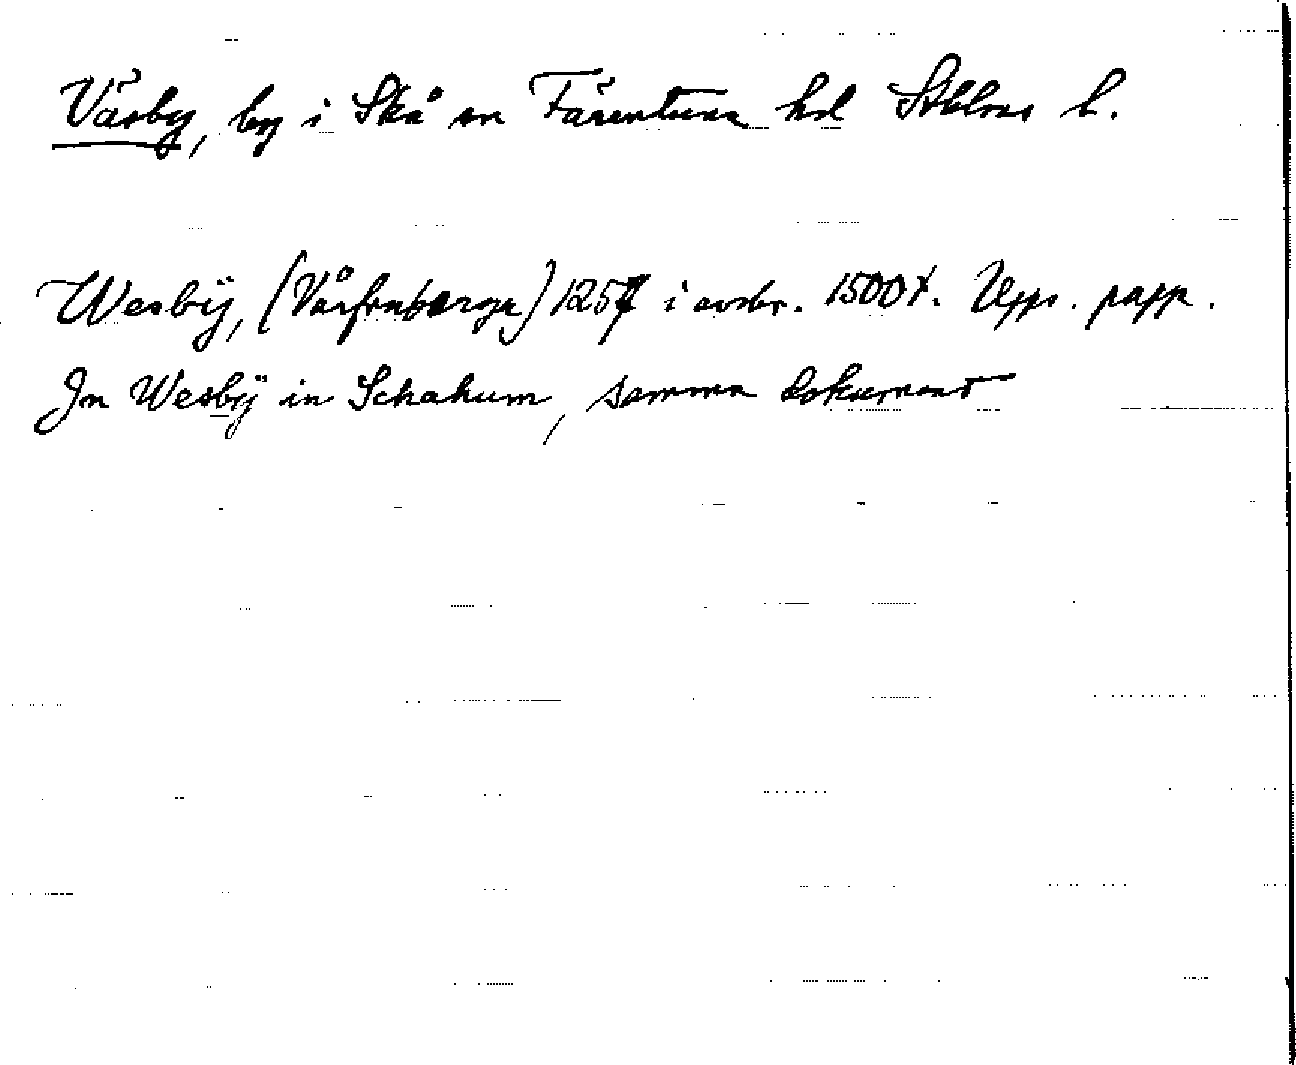 Väsby, by i Skå sn Färentuna hd Sthlms l.
Wesbÿ, (Vårfruberga) 1257 i avskr. 1500t. Upps. papp.
In Wesbÿ in Schahum, samma dokument